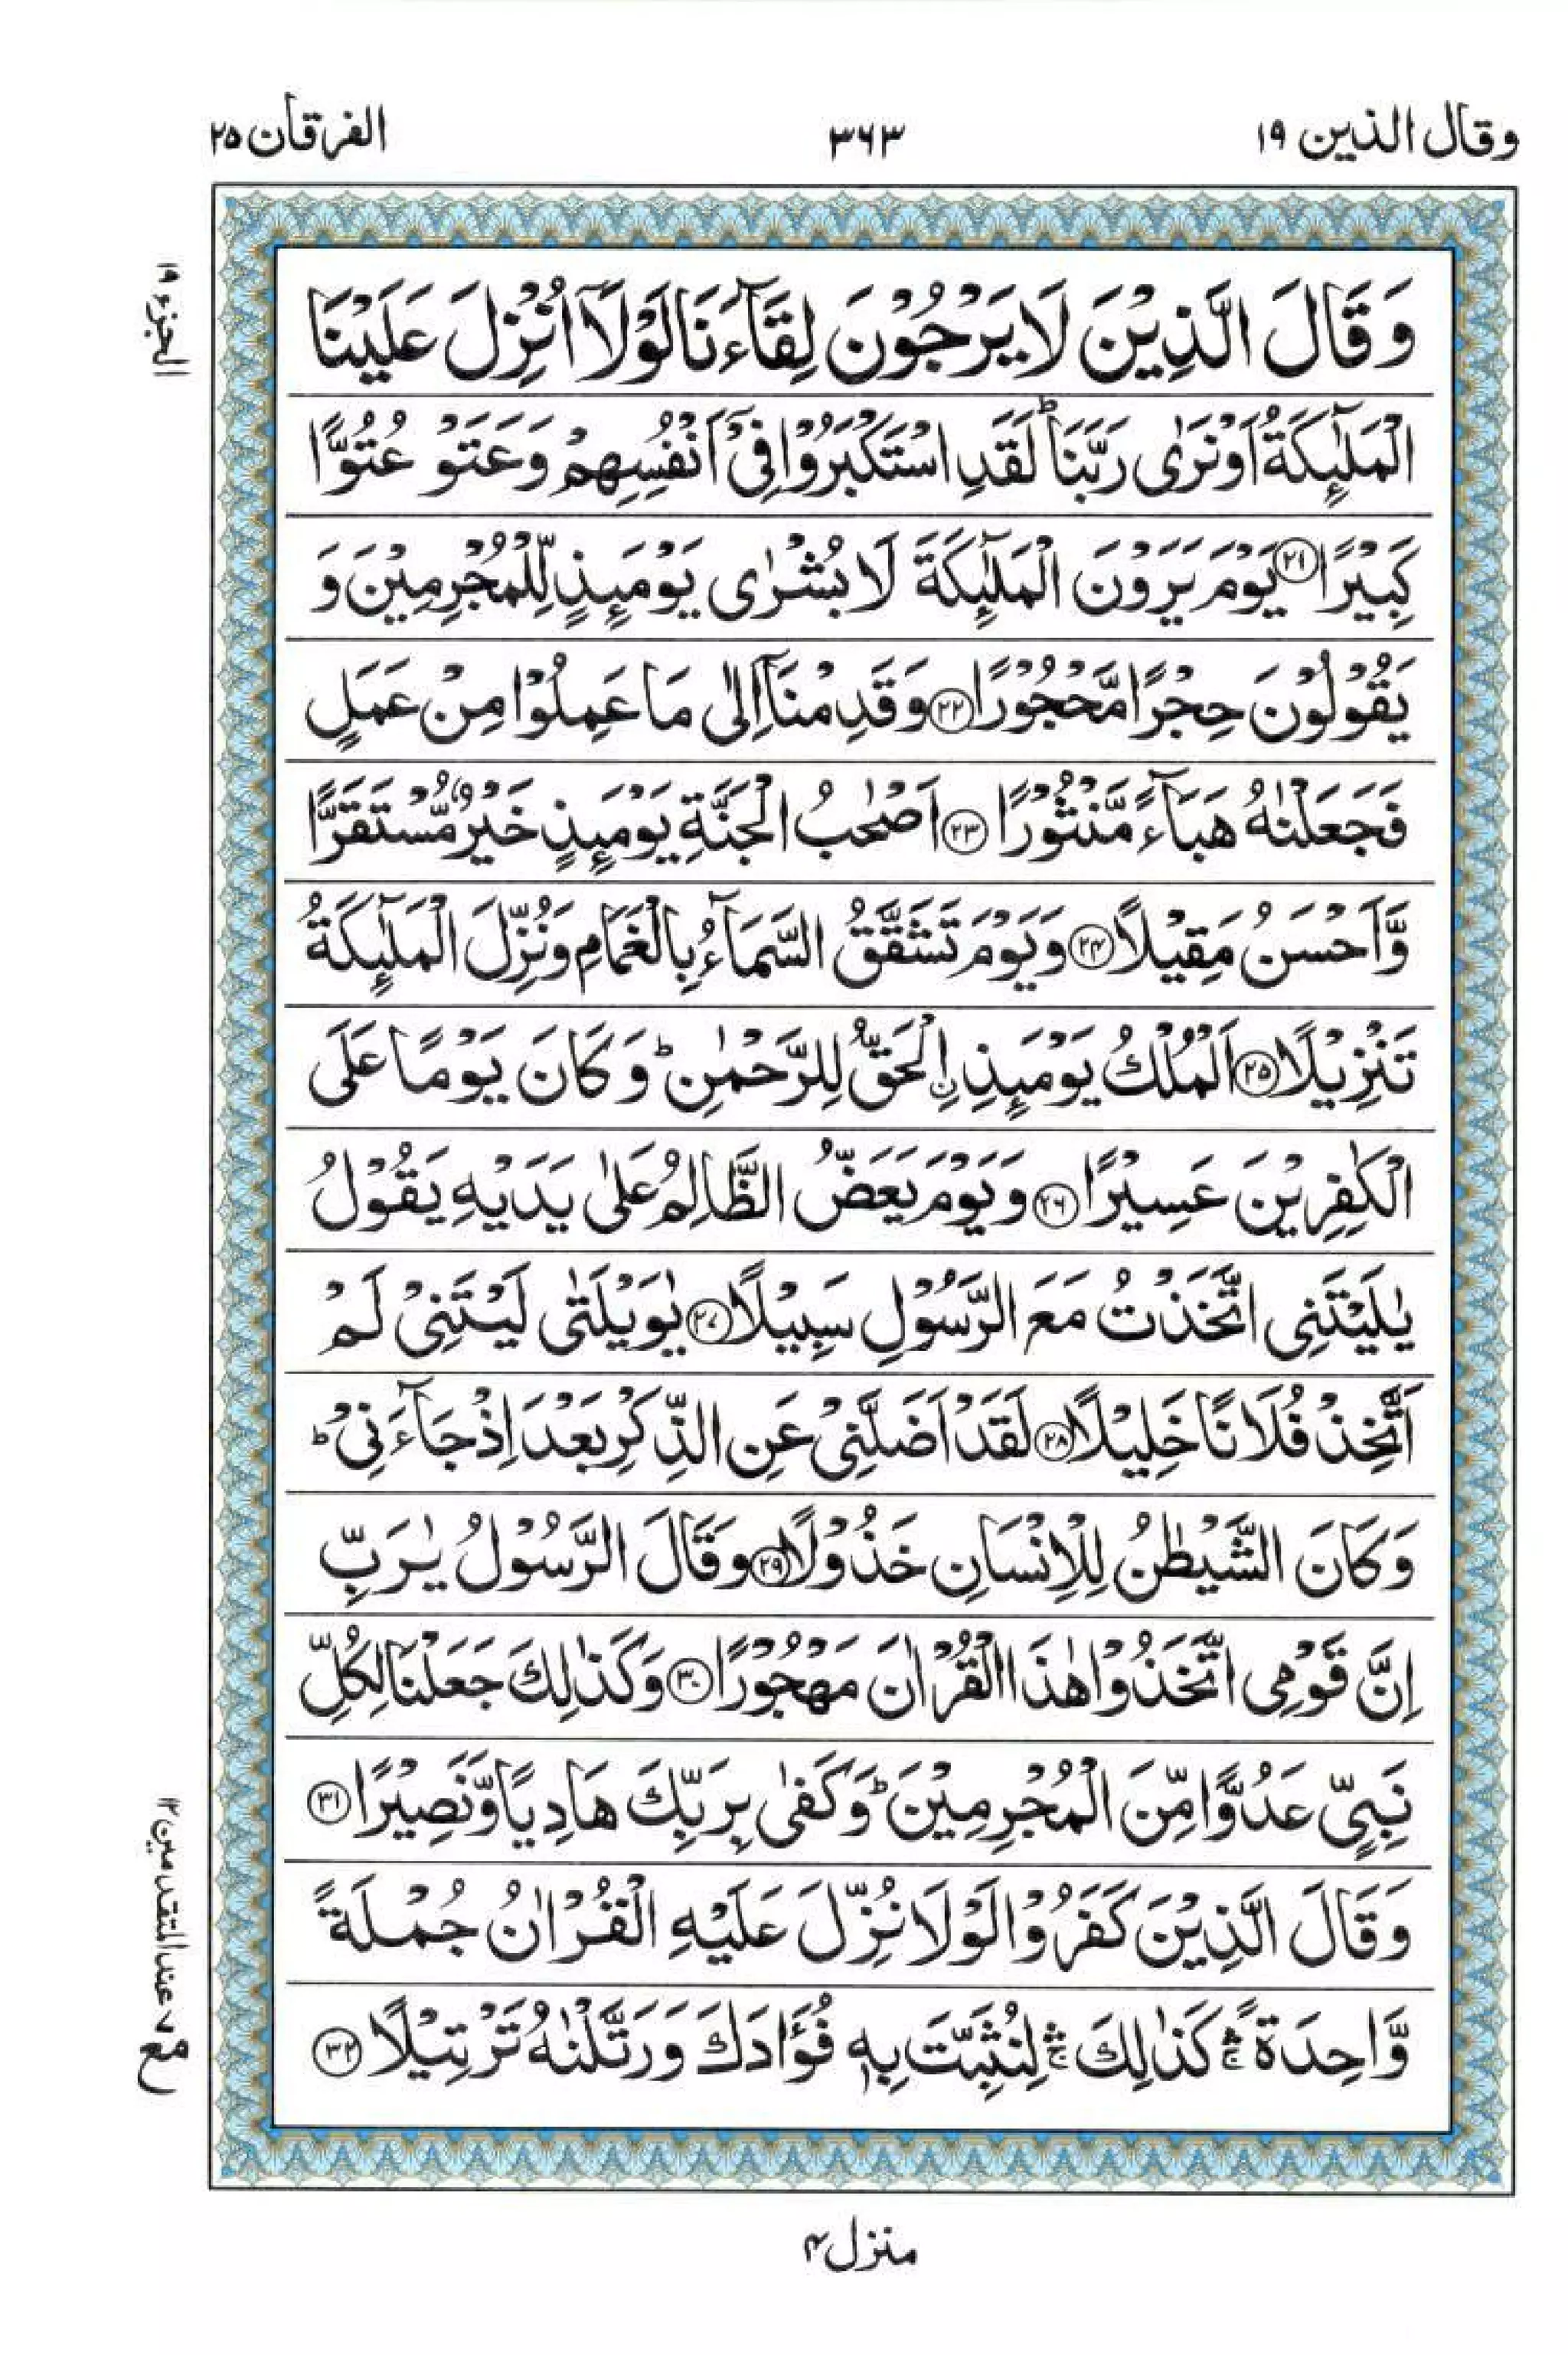 وقال الذين ۱۹
۳۶۳
الفرقان ۲۵
الجزء ۱۹
وَ قَالَ الَّذِیْنَ لَا یَرْجُوْنَ لِقَآءَنَا لَوْلَاۤ اُنْزِلَ عَلَیْنَا
الْمَلٰٓىِٕكَةُ اَوْ نَرٰی رَبَّنَا ؕ لَقَدِ اسْتَكْبَرُوْا فِیْۤ اَنْفُسِهِمْ وَعَتَوْ عُتُوًّا
كَبِیْرًا ﴿۲۱﴾ یَوْمَ یَرَوْنَ الْمَلٰٓىِٕكَةَ لَا بُشْرٰی یَوْمَىِٕذٍ لِّلْمُجْرِمِیْنَ وَ
یَقُوْلُوْنَ حِجْرًا مَّحْجُوْرًا ﴿۲۲﴾ وَ قَدِمْنَاۤ اِلٰی مَا عَمِلُوْا مِنْ عَمَلٍ
فَجَعَلْنٰهُ هَبَآءً مَّنْثُوْرًا ﴿۲۳﴾ اَصْحٰبُ الْجَنَّةِ یَوْمَىِٕذٍ خَیْرٌ مُّسْتَقَرًّا
وَّ اَحْسَنُ مَقِیْلًا ﴿۲۴﴾ وَ یَوْمَ تَشَقَّقُ السَّمَآءُ بِالْغَمَامِ وَ نُزِّلَ الْمَلٰٓىِٕكَةُ
تَنْزِیْلًا ﴿۲۵﴾ اَلْمُلْكُ یَوْمَىِٕذِ ِ۟الْحَقُّ لِلرَّحْمٰنِ ؕ وَ كَانَ یَوْمًا عَلَی
الْكٰفِرِیْنَ عَسِیْرًا ﴿۲۶﴾ وَ یَوْمَ یَعَضُّ الظَّالِمُ عَلٰی یَدَیْهِ یَقُوْلُ
یٰلَیْتَنِی اتَّخَذْتُ مَعَ الرَّسُوْلِ سَبِیْلًا ﴿۲۷﴾ یٰوَیْلَتٰی لَیْتَنِیْ لَمْ
اَتَّخِذْ فُلَانًا خَلِیْلًا ﴿۲۸﴾ لَقَدْ اَضَلَّنِیْ عَنِ الذِّكْرِ بَعْدَ اِذْ جَآءَنِیْ ؕ
وَ كَانَ الشَّیْطٰنُ لِلْاِنْسَانِ خَذُوْلًا ﴿۲۹﴾ وَ قَالَ الرَّسُوْلُ یٰرَبِّ
اِنَّ قَوْمِی اتَّخَذُوْا هٰذَا الْقُرْاٰنَ مَهْجُوْرًا ﴿۳۰﴾ وَ كَذٰلِكَ جَعَلْنَا لِكُلِّ
نَبِیٍّ عَدُوًّا مِّنَ الْمُجْرِمِیْنَ ؕ وَ كَفٰی بِرَبِّكَ هَادِیًا وَّ نَصِیْرًا ﴿۳۱﴾
وَ قَالَ الَّذِیْنَ كَفَرُوْا لَوْلَا نُزِّلَ عَلَیْهِ الْقُرْاٰنُ جُمْلَةً
وَّاحِدَةً ۛۚ كَذٰلِكَ ۛۚ لِنُثَبِّتَ بِهٖ فُؤَادَكَ وَ رَتَّلْنٰهُ تَرْتِیْلًا ﴿۳۲﴾
مع ۷ عند المتقدمین ۱۲
منزل ۴